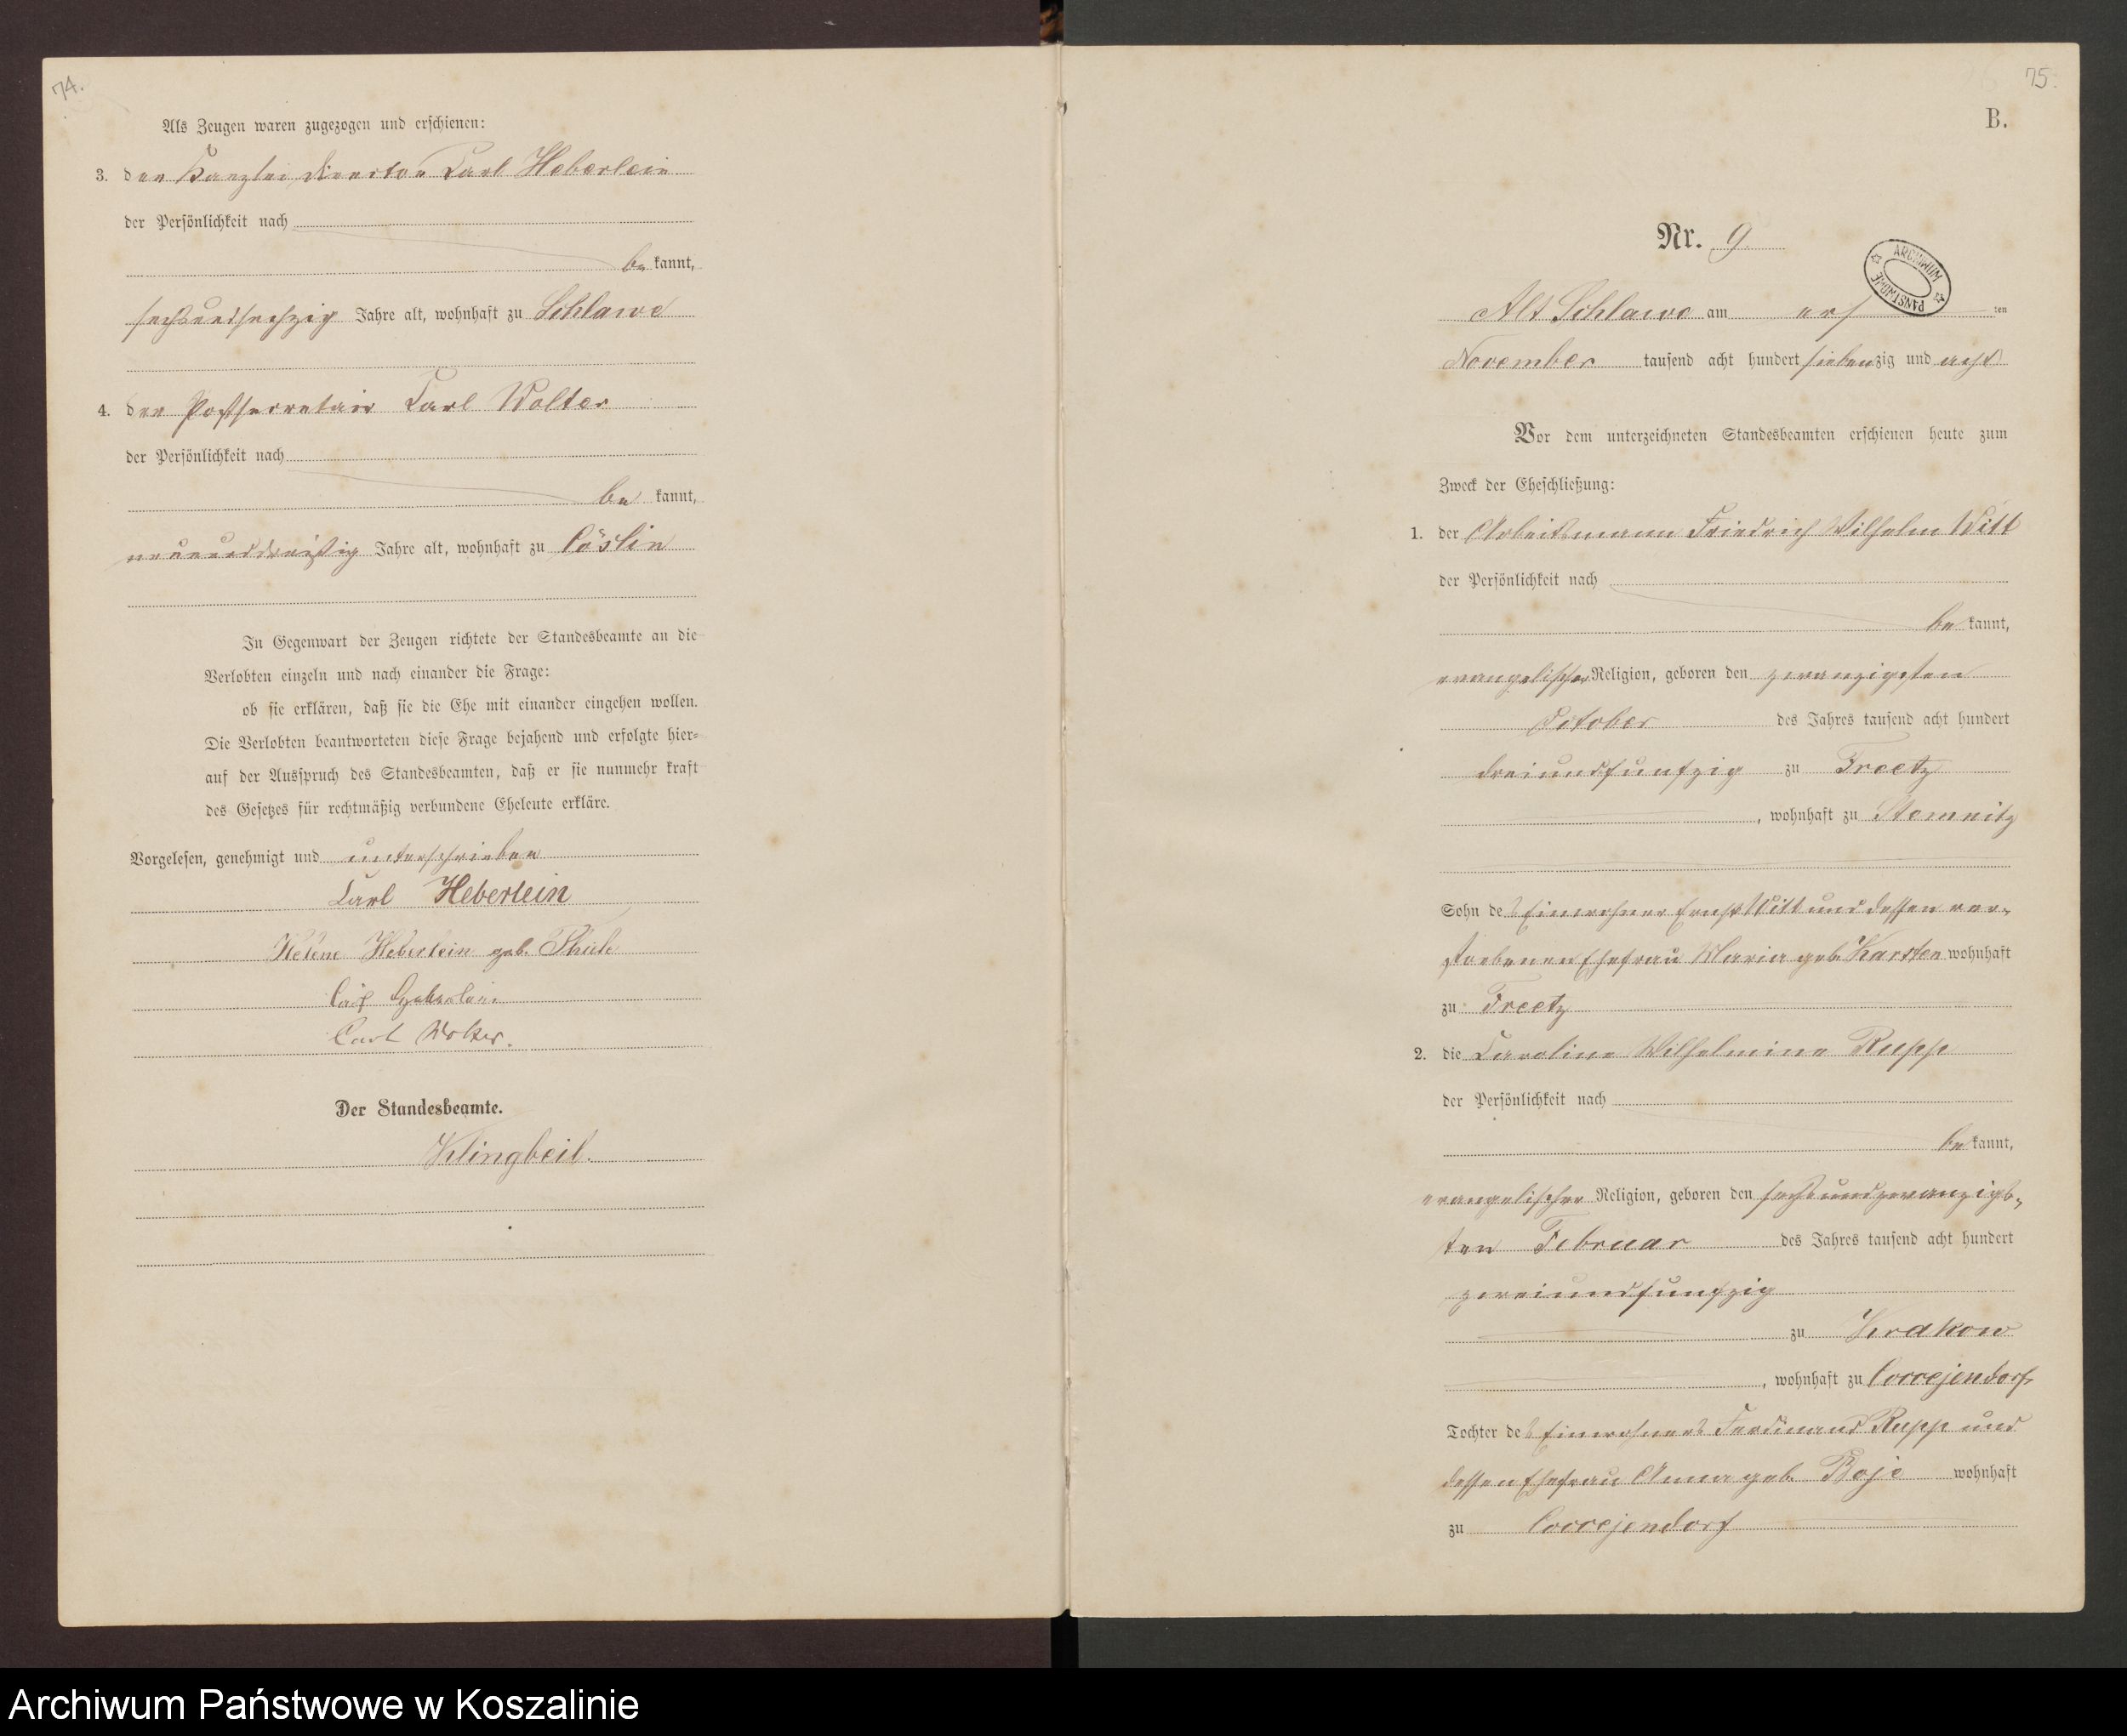 74.
Als Zeugen waren zugezogen und erschienen:
3. der Kanzlei Director Carl Heberlein
der Persönlichkeit nach
be kannt,
sechsundsechzig Jahre alt, wohnhaft zu Schlawe
4. der Postsecretair Carl Wolter
der Persönlichkeit nach
be kannt,
neununddreißig Jahre alt, wohnhaft zu Cöslin
In Gegenwart der Zeugen richtete der Standesbeamte an die
Verlobten einzeln und nach einander die Frage:
ob sie erklären, daß sie die Ehe mit einander eingehen wollen.
Die Verlobten beantworteten diese Frage bejahend und erfolgte hier-
auf der Ausspruch des Standesbeamten, daß er sie nunmehr kraft
des Gesetzes für rechtmäßig verbundene Eheleute erkläre.
Vorgelesen, genehmigt und unterschrieben
Carl Heberlein
Helene Heberlein geb. Thiele
Carl Heberlein
Carl Wolter.
Der Standesbeamte.
Klingbeil.
75.
B.
Nr. 9
ARCHIWUM PAŃSTWOWE
Alt Schlawe am ersten
November tausend acht hundert siebenzig und acht
Vor dem unterzeichneten Standesbeamten erschienen heute zum
Zweck der Eheschließung:
1. der Arbeitsmann Friedrich Wilhelm Witt
der Persönlichkeit nach
be kannt,
evangelischer Religion, geboren den zwanzigsten
October des Jahres tausend acht hundert
dreiundfunfzig zu Freetz
, wohnhaft zu Stemnitz
Sohn des Einwohner Ernst Witt und dessen ver-
storbenen Ehefrau Maria geb. Karsten wohnhaft
zu Freetz
2. die Caroline Wilhelmine Rupp
der Persönlichkeit nach
be kannt,
evangelischer Religion, geboren den sechsundzwanzigs-
ten Februar des Jahres tausend acht hundert
zweiundfunfzig
zu Krakow
, wohnhaft zu Coccejendorf
Tochter des Einwohners Ferdinand Rupp und
dessen Ehefrau Anna geb. Boje wohnhaft
zu Coccejendorf
Archiwum Państwowe w Koszalinie